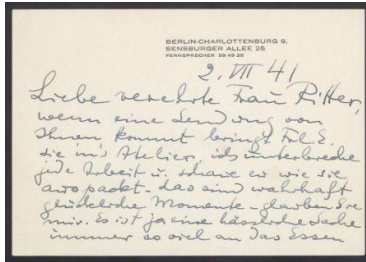 BERLIN-CHARLOTTENBURG 9,
SENSBURGER ALLEE 25
FERNSPRECHER 99 49 29
2. VII 41
Liebe verehrte Frau Ritter,
wenn eine Sendung von
Ihnen kommt bringt Frl. S.
sie in's Atelier, ich unterbreche
jede Arbeit u. schaue zu wie sie
auspackt - das sind wahrhaft
glückliche Momente - glauben Sie
mir. Es ist ja eine hässliche Sache
immer so viel an das Essen